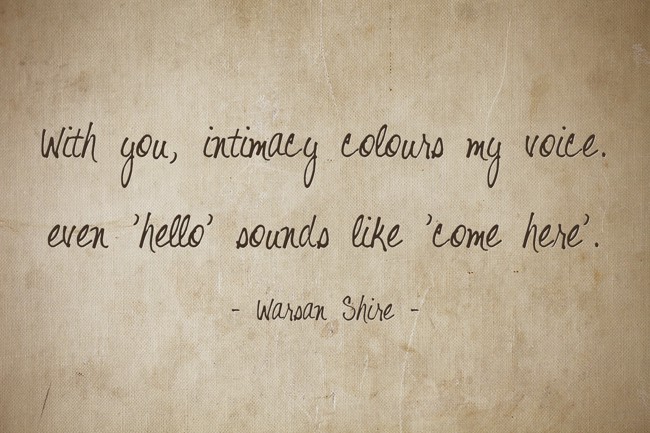 With you, intimacy colours my voice.
even 'hello' sounds like 'come here'.
- Warsan Shire -